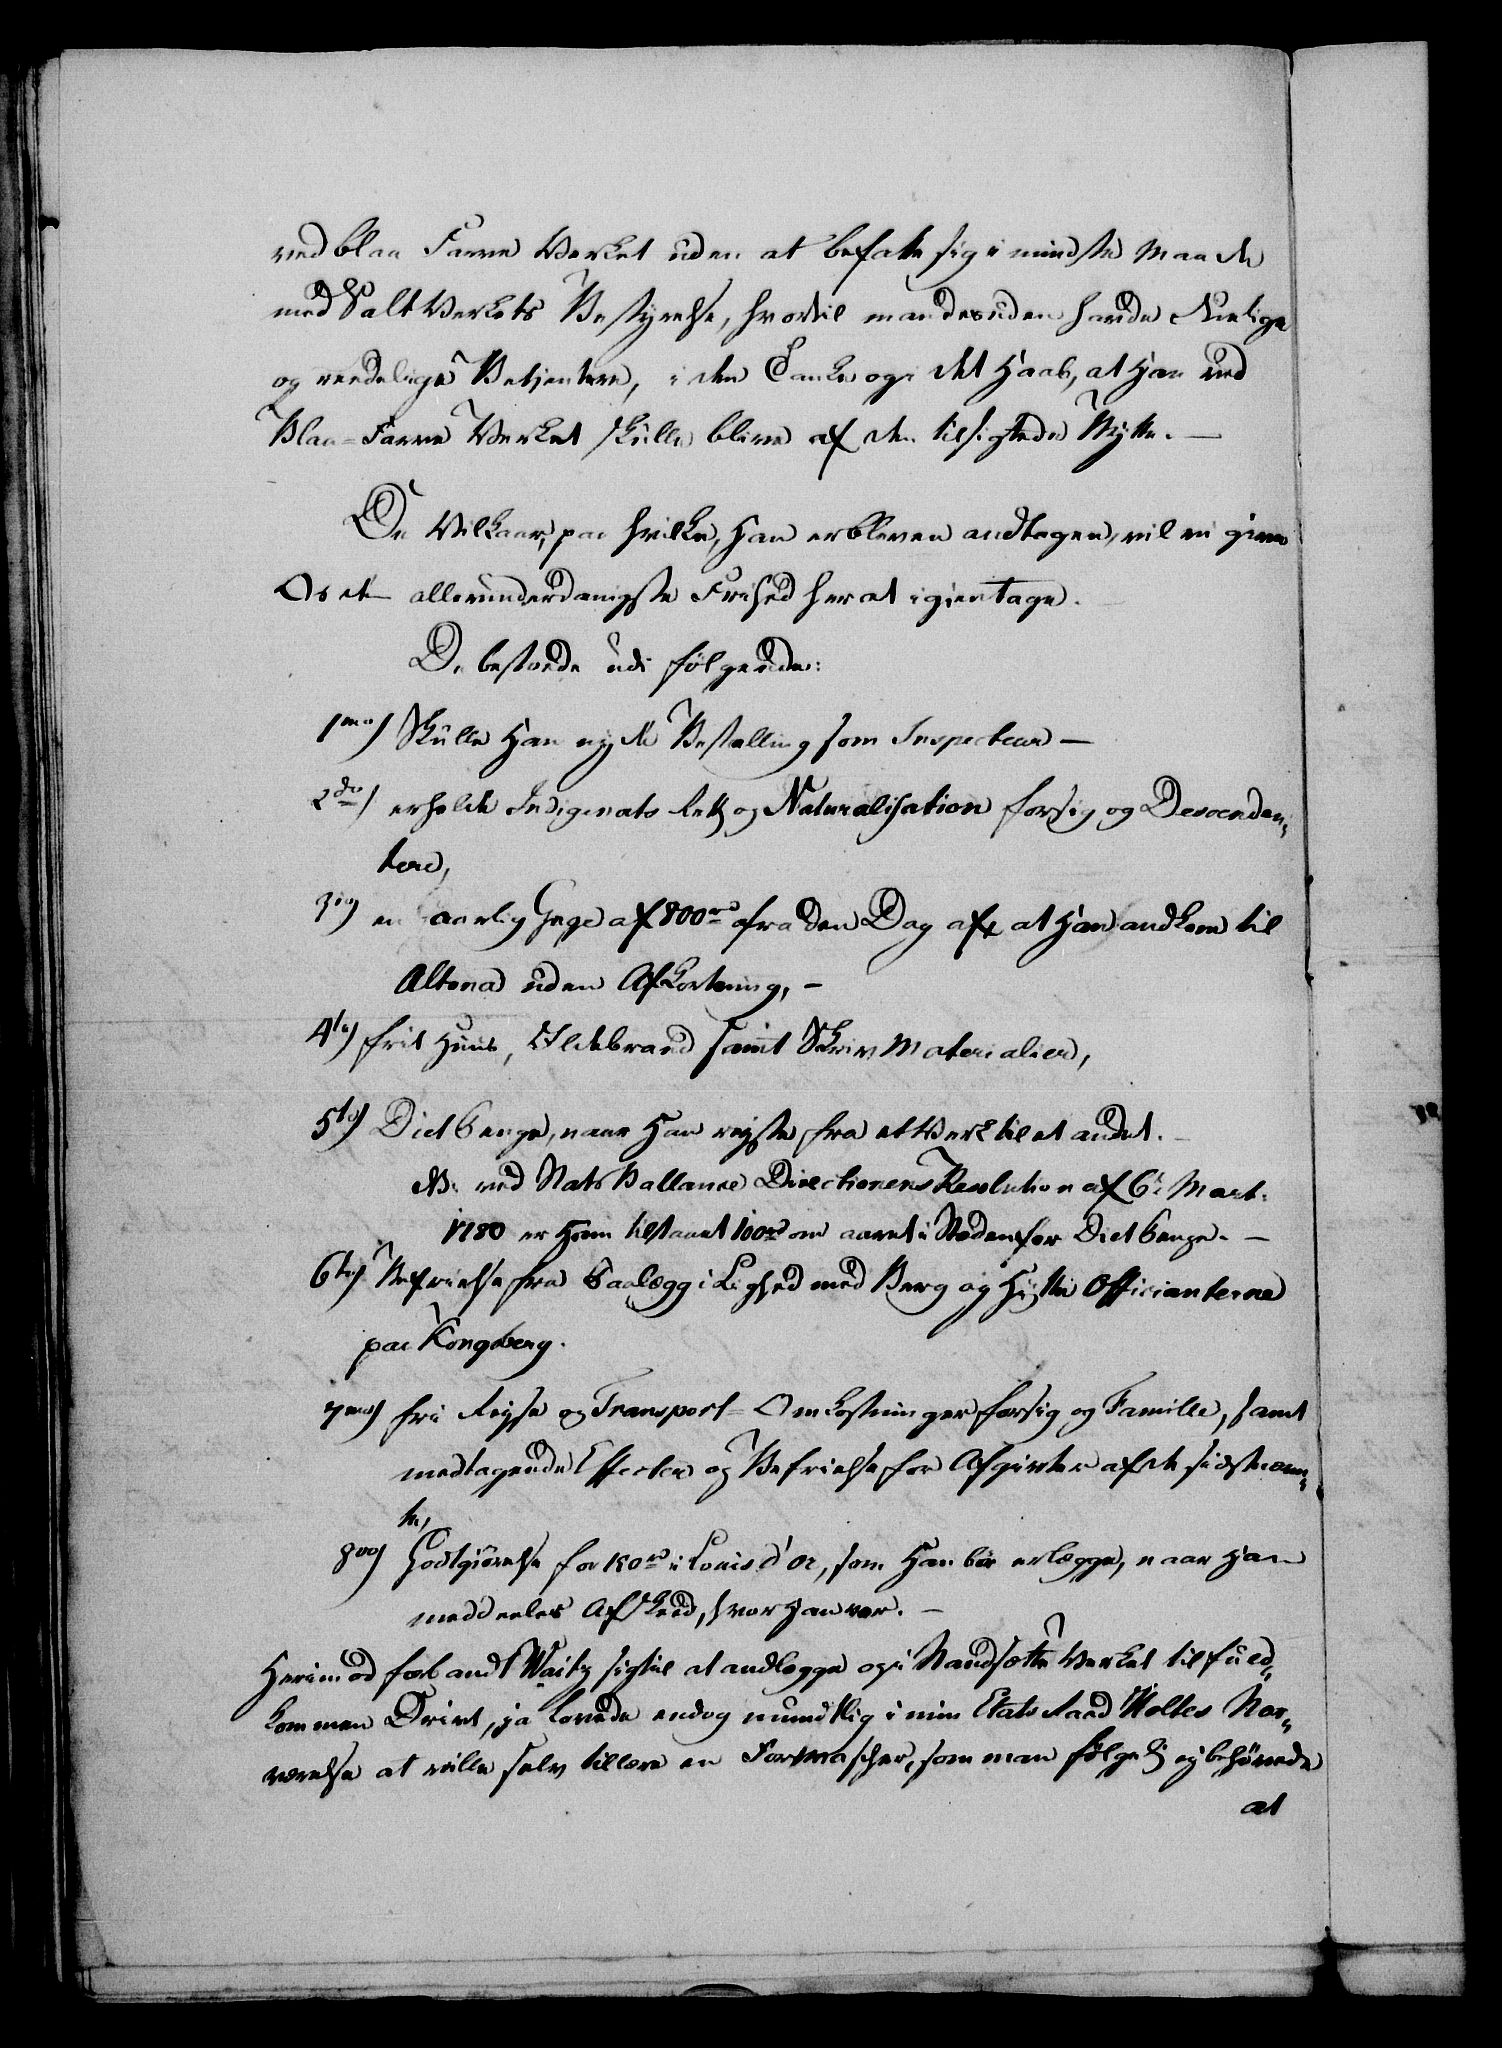 ved blaa Farve Verket uden at befatte sig i mindste Maade
med Salt Verkets Bestyrelse, hvortil man desuden havde duelige
og reedelige Betjentere, i den Tanke og i det Haab, at Han ved
Blaa-Farve Verket skulle blive af den tilsigtede Nytte. —
De Vilkaar, paa hvilke, Han er bleven andtagen, vil vi give
Os den allerunderdanigste Frihed her at igientage.
De bestoede udi følgende:
1mo) Skulle Han nyde Bestalling som Inspecteur —
2do) erholde Indigenats Rett og Naturalisation for sig og Descenden„
tere,
3io) en aarlig Gage af 800rd fra den Dag af at Han andkom til
Altona uden Afkortning, —
4to) frit Huus, Ildebrand samt Skriv Materialier,
5to) Diet Penge, naar Han reyste fra et Verk til et andet. —
NB. ved Stats Ballance Directionens Resolution af 6te Mart.
1780 er Ham tilstaaet 100rd om aaret i Steden for Diet Penge. —
6to) Befrielse fra Paalægg i Lighed med Berg og Hytte Officianterne
paa Kongsberg.
7mo) frie Reyse og Transport-Omkostninger for sig og Famille, samt
medtagende Effecter og Befrielse for Afgivter af de sidstnævn„
te,
8vo) Godtgiørelse for 150rd i Louis d'or, som Han bør erlægge, naar Han
meddeeles Afskeed, hvor Han var. —
Herimod forbandt Waitz sig til at andlægge og i Standsætte Verket til fuld„
kommen Drivt, ja lovede endog mundtlig i min Etats Raad Holtes Nær„
værelse at ville selv tillære en Farvmascher, som man følgelig ej behøvede
at